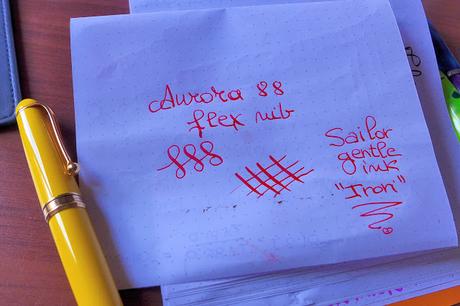 Aurora 88
flex nib
Sailor
gentle
ink
"Irori"